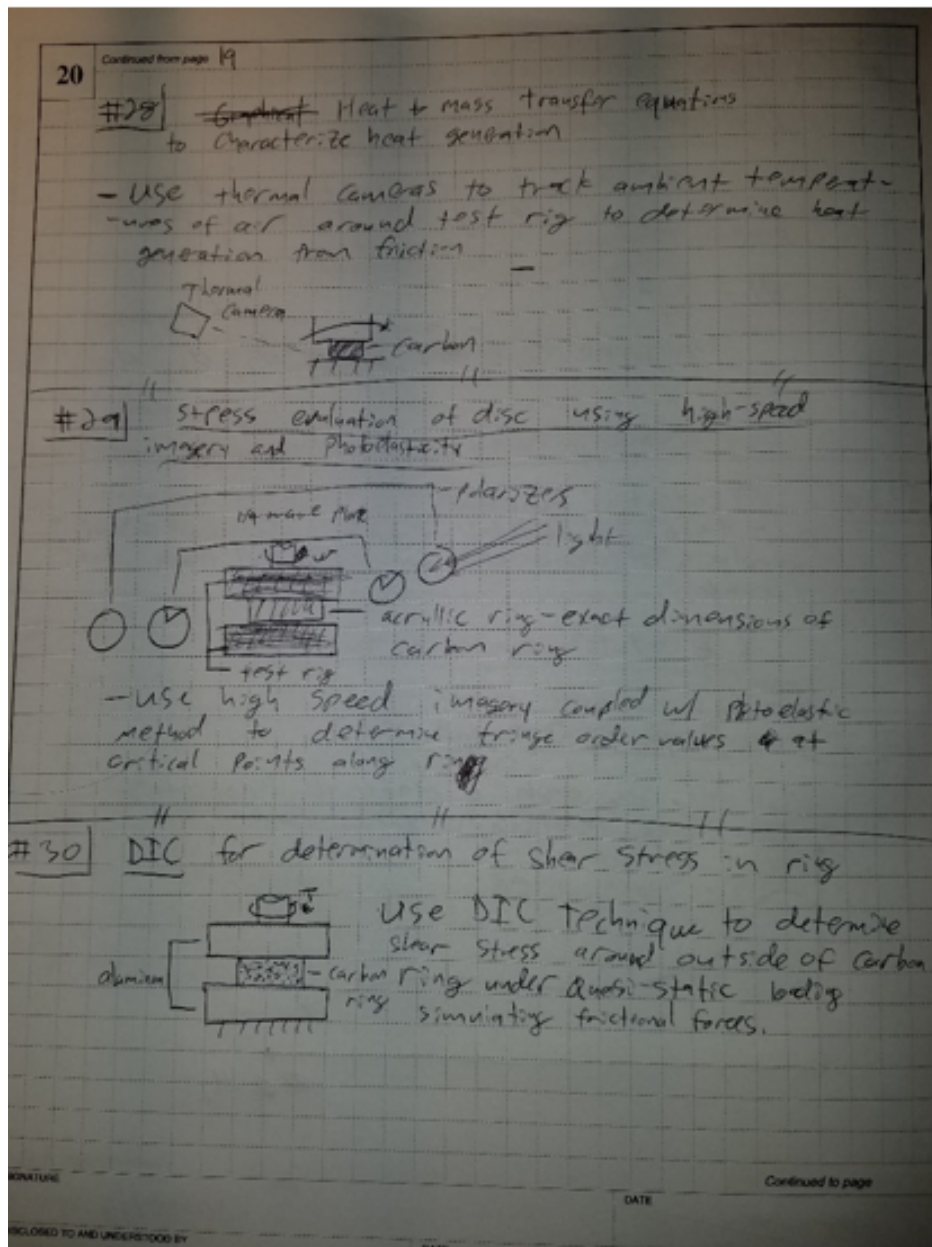 20
Continued from page 19
#28 Heat & mass transfer equations
to characterize heat generation
- Use thermal cameras to track ambient temperat-
-ures of air around test rig to determine heat
generation from friction
Thermal
Camera
carbon
#29 Stress evaluation of disc using high-speed
imagery and Photoelasticity
polarizers
1/4 wave plate
light
acryllic ring - exact dimensions of
carbon ring
test rig
- Use high speed imagery coupled w/ photoelastic
method to determine fringe order values at
critical points along ring
#30 DIC for determination of shear stress in ring
T
Use DIC Technique to determine
shear stress around outside of carbon
ring under Quasi-static loading
simulating frictional forces.
carbon
ring
SIGNATURE
DATE
Continued to page
DISCLOSED TO AND UNDERSTOOD BY
DATE